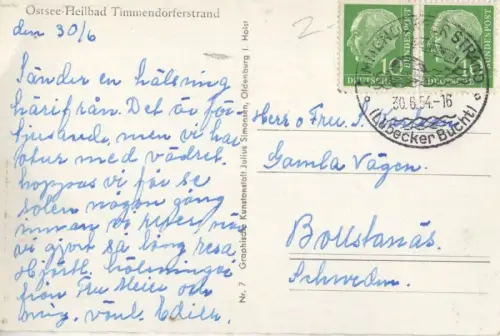 Ostsee-Heilbad Timmendorferstrand
den 30/6
Sänder en hälsning
härifrån. Det är för-
tjusande, men vi har
otur med vädret.
hoppas vi får se
solen någon gång
innan vi reser, när
vi gjort så lång resa
Hjärtl. hälsningar
från Fru Meier och
mig. vänl. Edith.
Nr. 7 Graphische Kunstanstalt Julius Simonsen, Oldenburg i. Holst
2-
10
DEUTSCHE BUNDESPOST
10
DEUTSCHE BUNDESPOST
30.6.54.-16
(Lübecker Bucht)
Herr o Fru
Gamla Vägen.
Bollstanäs.
Schweden.